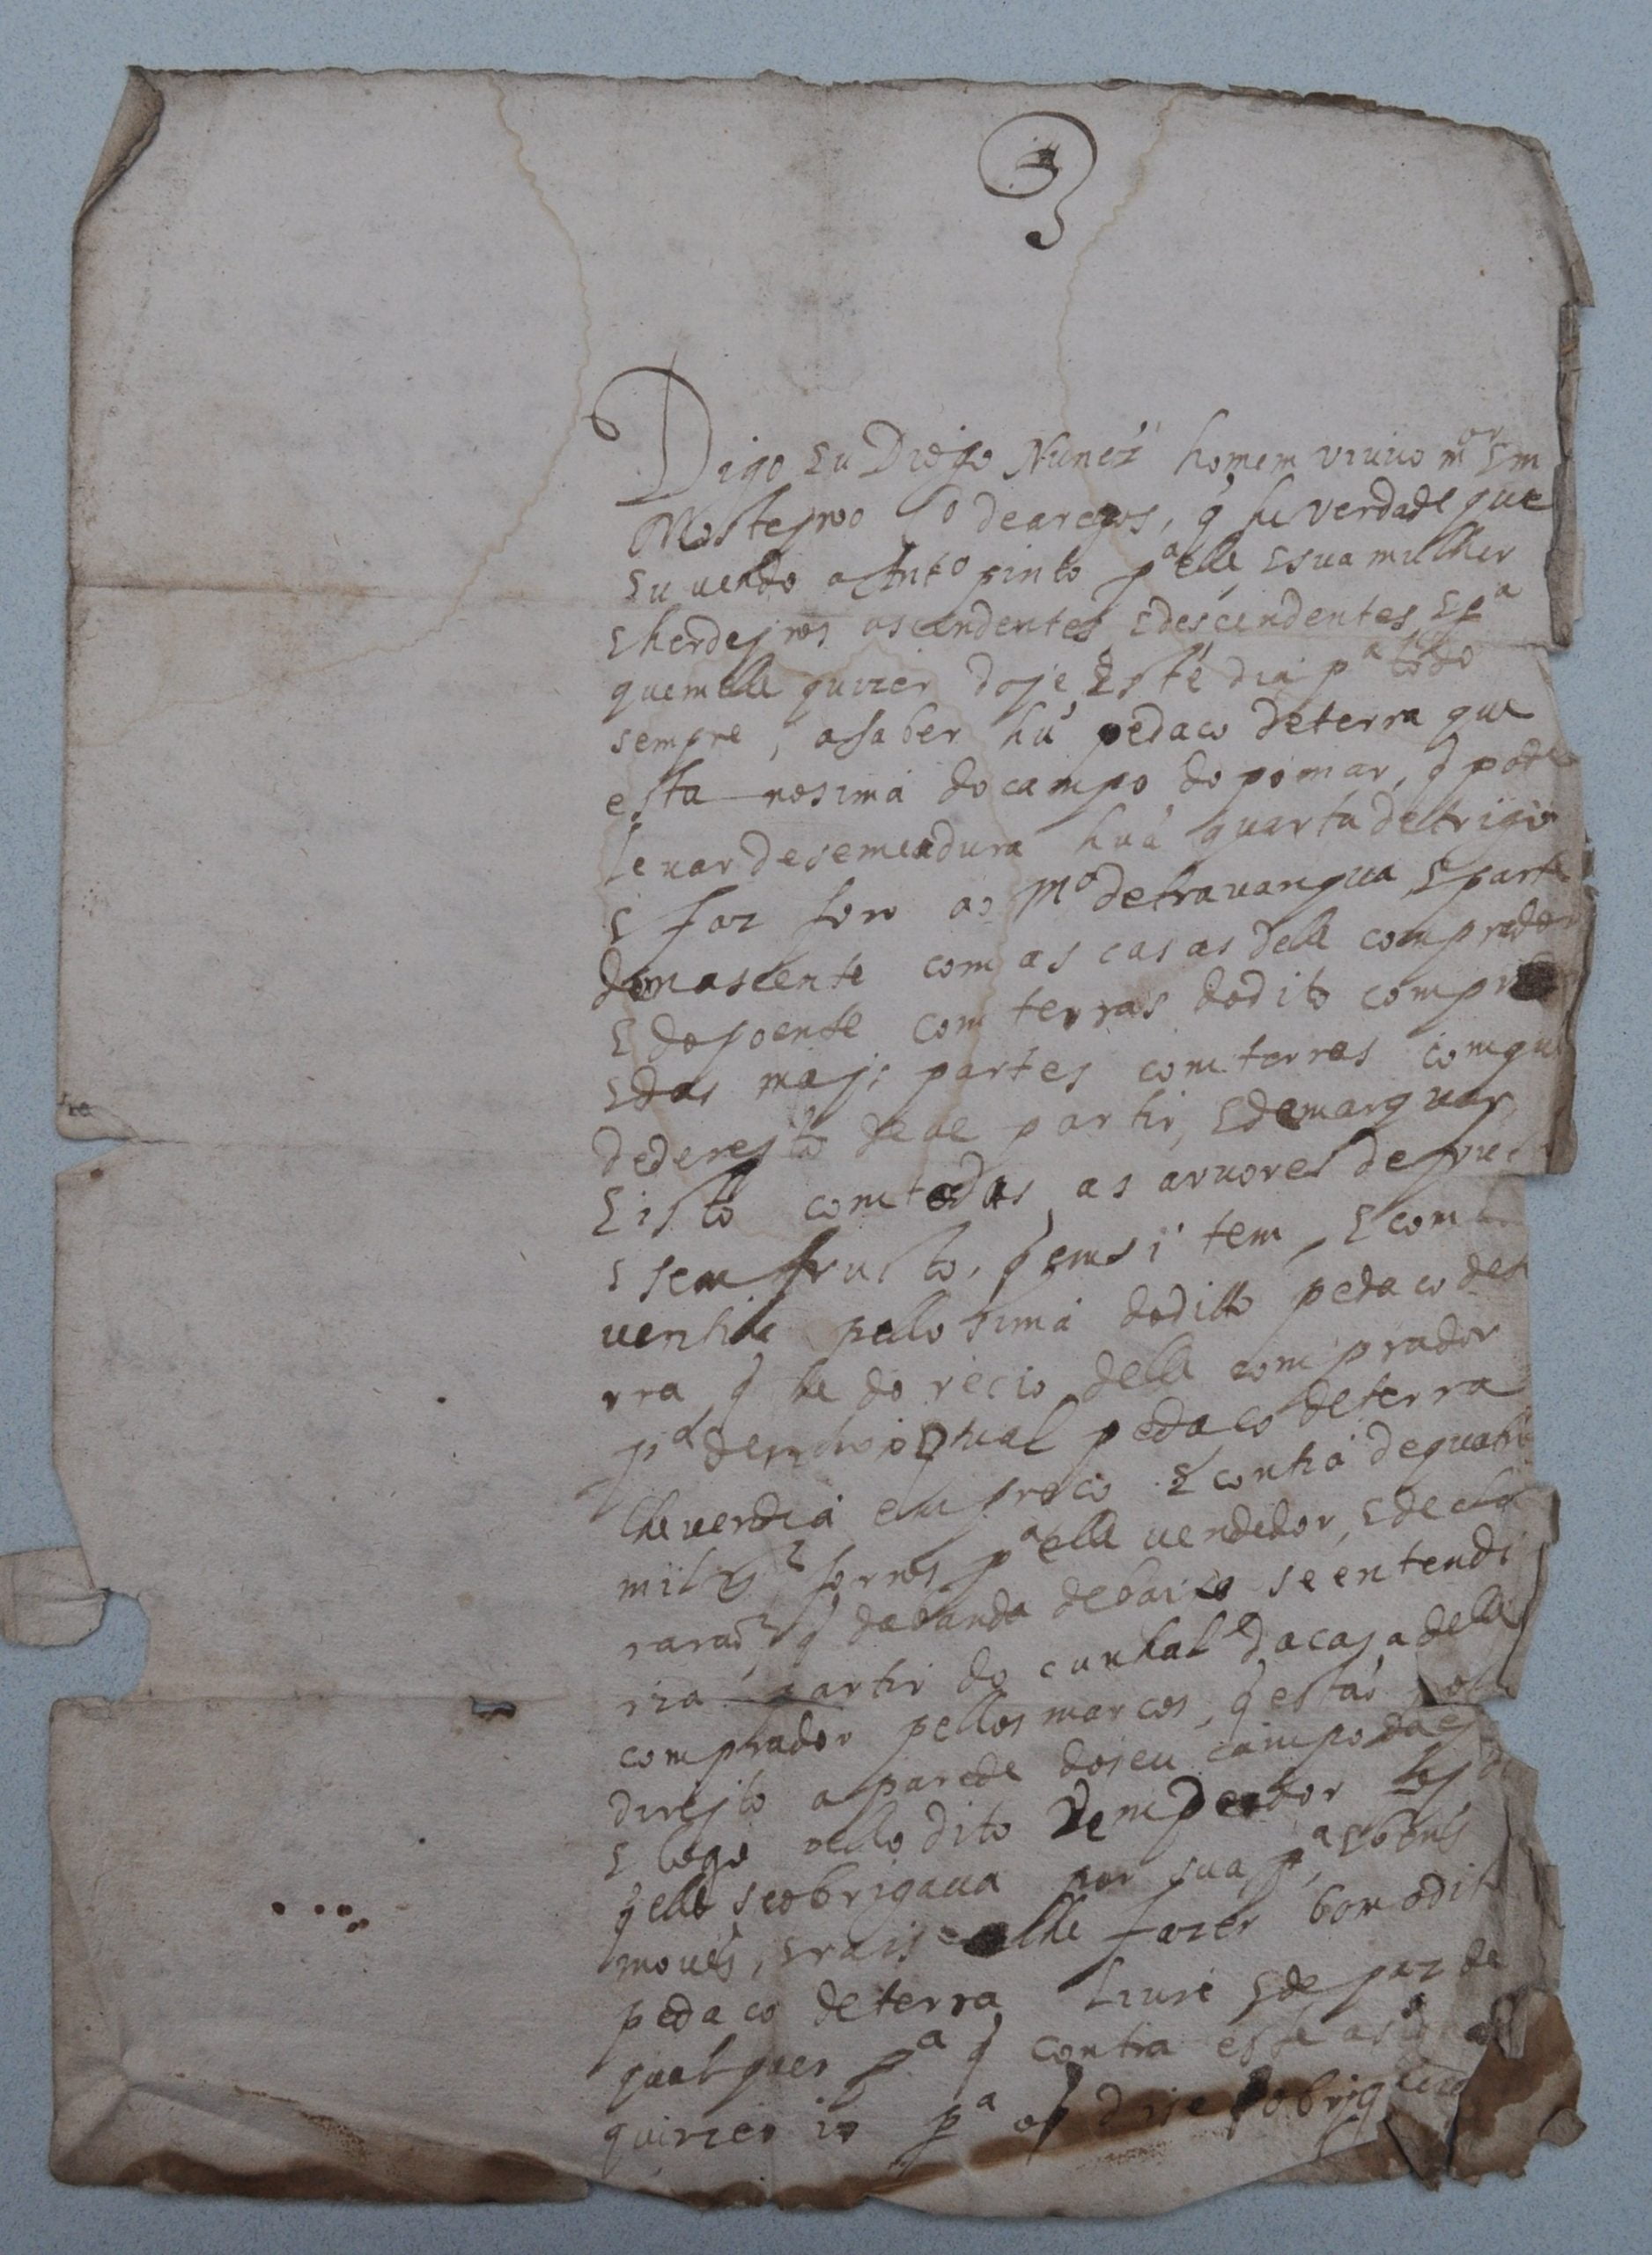 Digo Eu Diogo Nunez homem viuuo mor Em
Mosteyro Co de aregos, q̃ he verdade que
Eu uendo a Anto pinto pa elle E sua mulher
E herdeyros ascendentes E descendentes E pa
quem elle quizer doje Este dia pa todo
sempre, a saber hũ pedaco de terra que
esta no sima do campo do pomar, q̃ pode
leuar de semeadura hũa quarta de trigo
E faz foro ao Mo de trauanqua E parte
do nascente com as casas delle comprador
E do poente com terras do dito comprador
E das mays partes com terras com que
de dereyto deue partir, E demarquar
E isto com todas as aruores de fruc
E sem fructo, q̃ em si tem, E com
uentida pello sima do ditto pedaco de te
rra q̃ he do recio delle comprador
pa dentro o qual pedaco de terra
lhe vendia em preco E contia de quatro
mil rs forros pa elle vendedor, E decla
rarão q̃ da banda de baixo se entendi
ria partir do cunhal da casa delle
comprador pellos marcos, q̃ estão
direyto a parede do seu campo da
E logo pello dito vendedor foy
q̃ elle se obrigaua por sua pa E bens
moues, E rais a lhe fazer bom o dito
pedaco de terra liure E de paz de
qualquer pa q̃ contra este
quizer ir pa o q̃ dise obrig